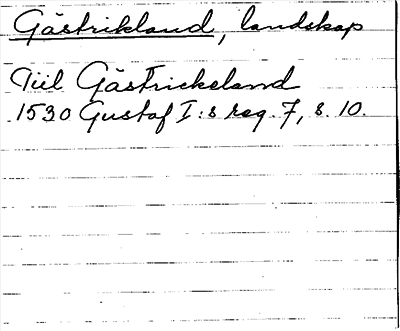 Gästrikland, landskap
Tiil Gästrickeland
1530 Gustaf I:s reg. 7, s. 10.